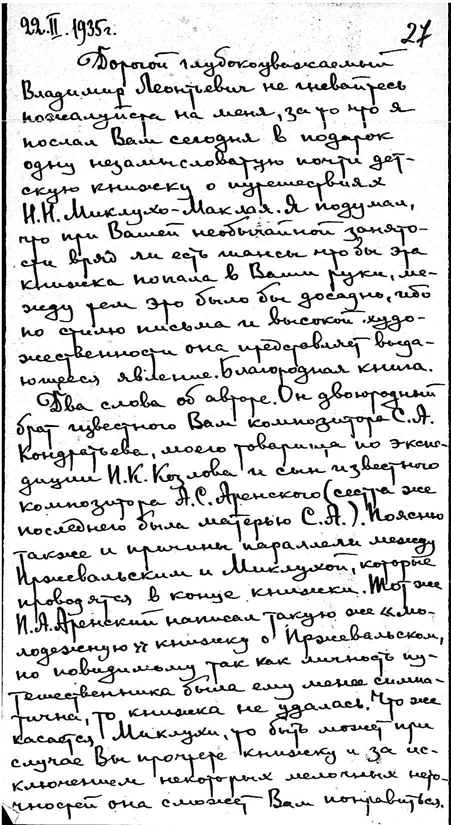 22.II.1935г.
27
Дорогой глубокоуважаемый
Владимир Леонтьевич не гневайтесь
пожалуйста на меня, за то что я
послал Вам сегодня в подарок
одну незамысловатую почти дет-
скую книжку о путешествиях
Н.Н. Миклухо-Маклая. Я подумал,
что при Вашей необычайной занято-
сти вряд ли есть шансы чтобы эта
книжка попала в Ваши руки, ме-
жду тем это было бы досадно, ибо
по стилю письма и высокой худо-
жественности она представляет выда-
ющееся явление. Благородная книга.
Два слова об авторе. Он двоюродный
брат известного Вам композитора С.А.
Кондретьева, моего товарища по экспе-
диции П.К. Козлова и сын известного
композитора А.С. Аренского (сестра же
последнего была матерью С.А.). Поясню
также и причины параллели между
Пржевальским и Миклухой, которые
проводятся в конце книжки. Тот же
П.А. Аренский написал такую же «мо-
лодежную» книжку о Пржевальском,
но повидимому так как личность пу-
тешественника была ему менее симпа-
тична, то книжка не удалась. Что же
касается Миклухи, то быть может при
случае Вы прочтете книжку и за ис-
ключением некоторых мелочных нето-
чностей она сможет Вам понравиться.